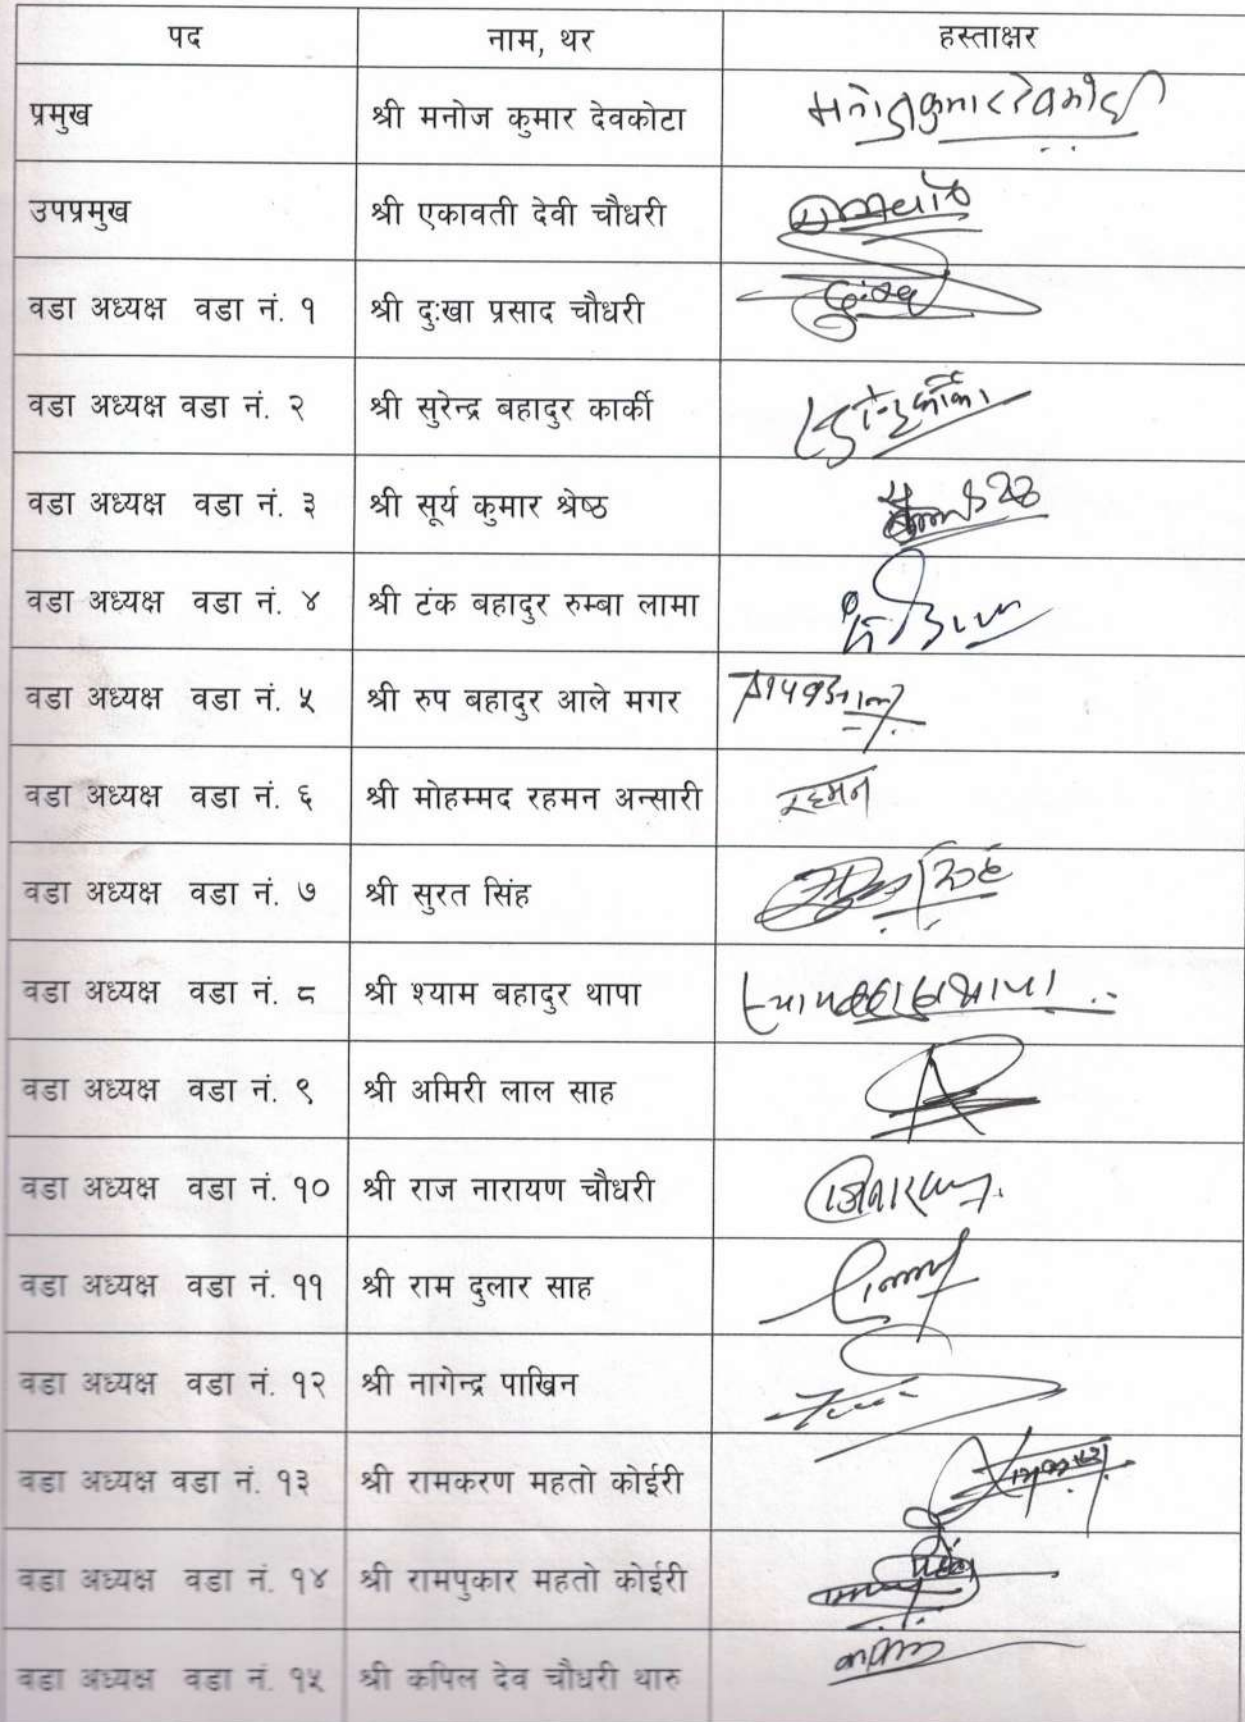 पद नाम, थर हस्ताक्षर
प्रमुख श्री मनोज कुमार देवकोटा
उपप्रमुख श्री एकावती देवी चौधरी
वडा अध्यक्ष वडा नं. १ श्री दुःखा प्रसाद चौधरी
वडा अध्यक्ष वडा नं. २ श्री सुरेन्द्र बहादुर कार्की
वडा अध्यक्ष वडा नं. ३ श्री सूर्य कुमार श्रेष्ठ
वडा अध्यक्ष वडा नं. ४ श्री टंक बहादुर रुम्बा लामा
वडा अध्यक्ष वडा नं. ५ श्री रुप बहादुर आले मगर
वडा अध्यक्ष वडा नं. ६ श्री मोहम्मद रहमन अन्सारी रहमन
वडा अध्यक्ष वडा नं. ७ श्री सुरत सिंह
वडा अध्यक्ष वडा नं. ८ श्री श्याम बहादुर थापा
वडा अध्यक्ष वडा नं. ९ श्री अमिरी लाल साह
वडा अध्यक्ष वडा नं. १० श्री राज नारायण चौधरी
वडा अध्यक्ष वडा नं. ११ श्री राम दुलार साह
वडा अध्यक्ष वडा नं. १२ श्री नागेन्द्र पाख्रिन
वडा अध्यक्ष वडा नं. १३ श्री रामकरण महतो कोईरी
वडा अध्यक्ष वडा नं. १४ श्री रामपुकार महतो कोईरी
वडा अध्यक्ष वडा नं. १५ श्री कपिल देव चौधरी थारु